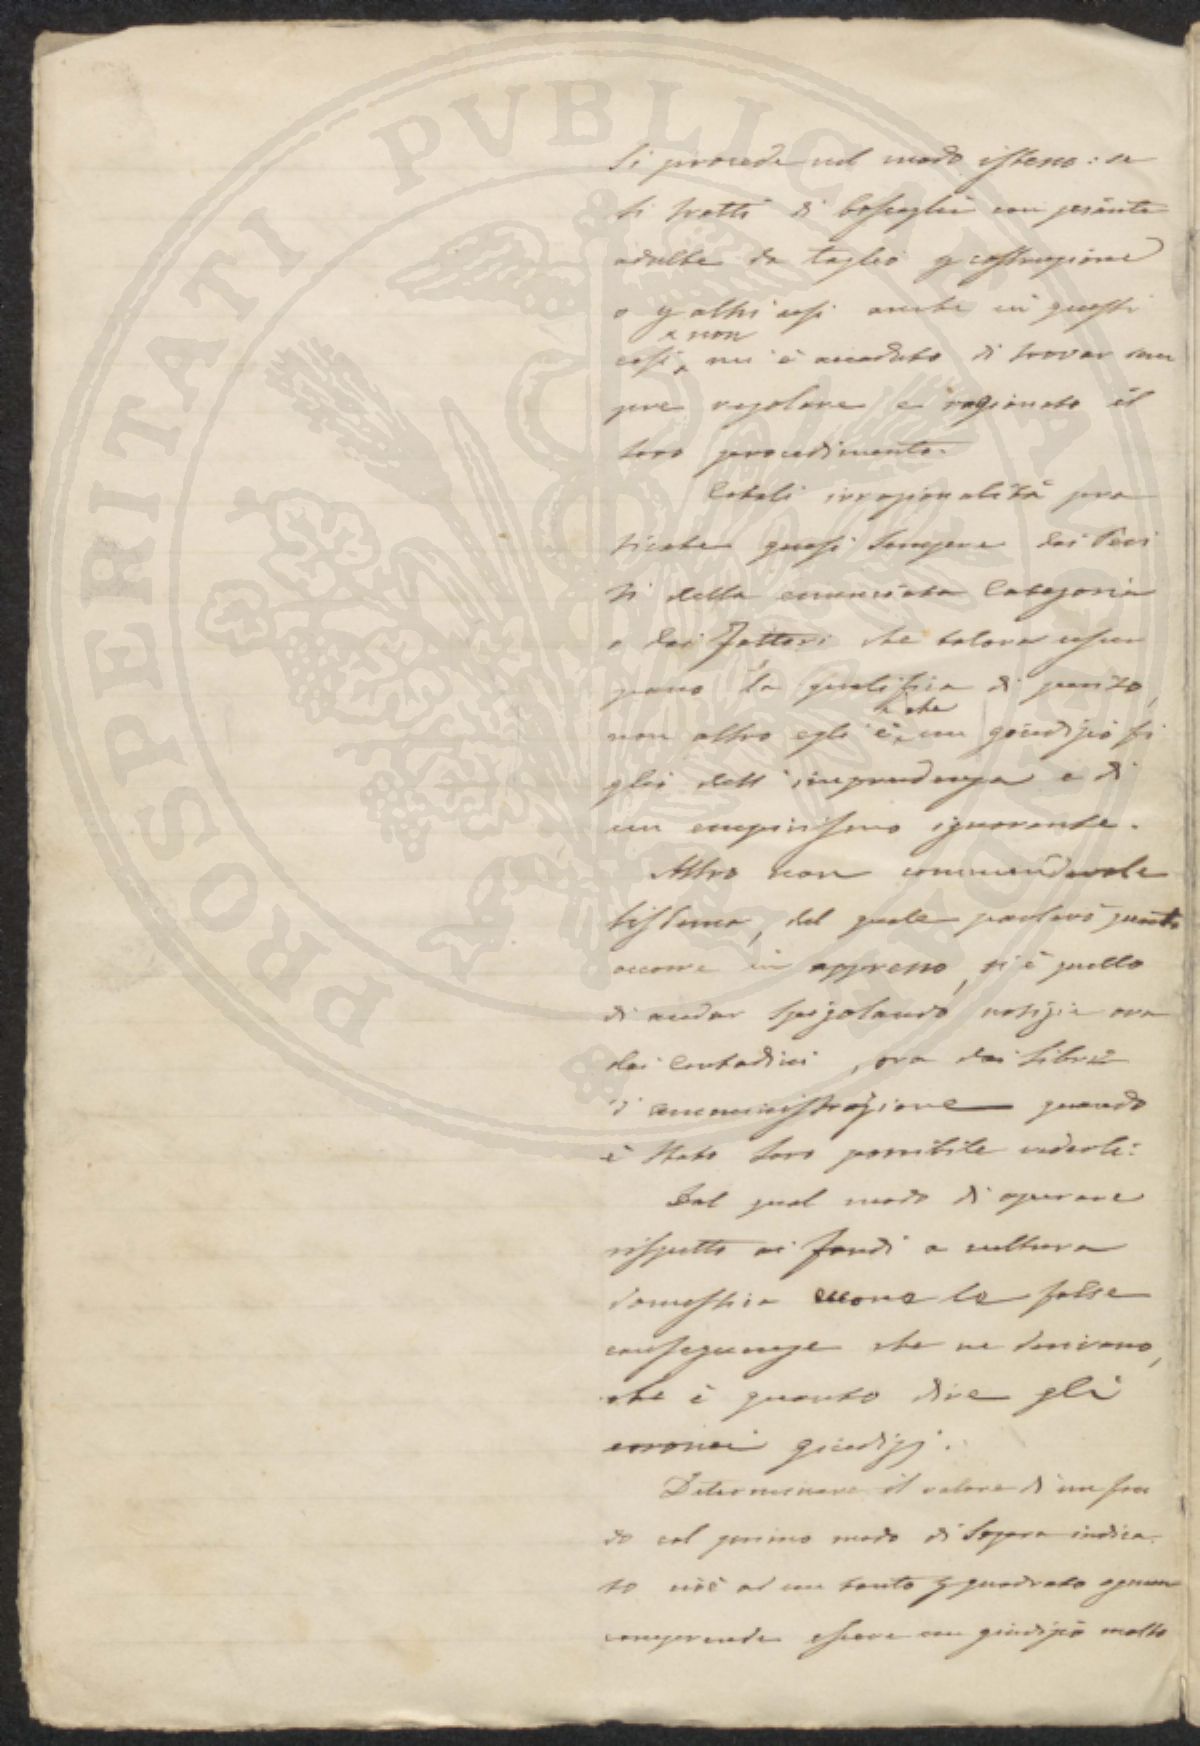 PROSPERITATI PVBLICAE AVGENDAE
si procede nel modo istesso: se
si tratti di boscaglie con piante
adulte da taglio p costruzione
o p altri usi anche in questi
casi non mi è accaduto di trovar sem
pre regolare e ragionato il
loro procedimento.
Cotali irrazionalità pra
ticate quasi sempre dai Peri
ti della enunciata Categoria
o dai Fattori che talora usur
pano la qualifica di perito,
non altro egli è che un giudizio fi
glio dell'imprudenza e di
un empirismo ignorante.
Altro non commendevole
sistema, del quale parlerò quanto
occorre in appresso, si è quello
di andar spigolando notizie ora
dai Contadini, ora dai libri
d'amministrazione quando
è stato loro possibile vederli:
Dal qual modo di operare
rispetto ai fondi a cultura
domestica eccone le false
conseguenze che ne derivano,
che è quanto dire gli
erronei giudizj.
Determinare il valore di un fon
do col primo modo di sopra indica
to cioè ad un tanto p quadrato ognun
comprende essere un giudizio molto